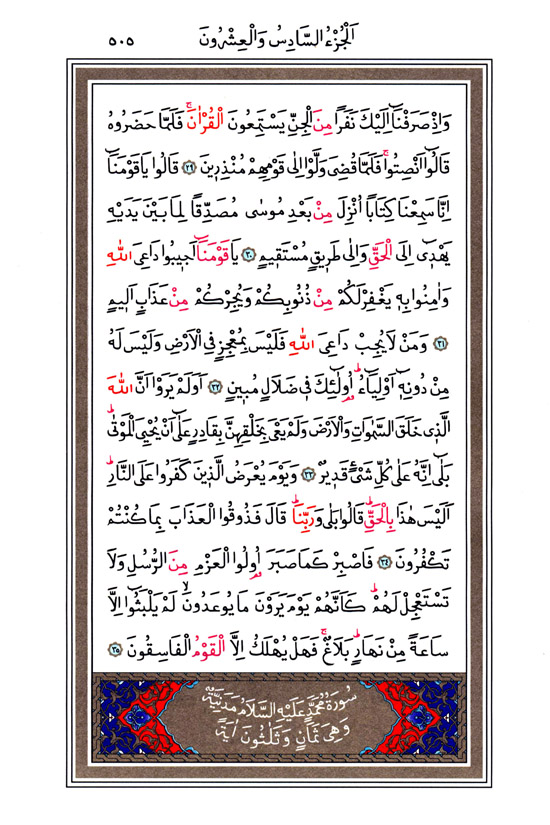 اَلْجُزْءُ السَّادِسُ وَالْعِشْرُونَ
٥٠٥
وَاِذْ صَرَفْنَٓا اِلَيْكَ نَفَراً مِنَ الْجِنِّ يَسْتَمِعُونَ الْقُرْاٰنَۚ فَلَمَّا حَضَرُوهُ
قَالُٓوا اَنْصِتُواۚ فَلَمَّا قُضِيَ وَلَّوْا اِلٰى قَوْمِهِمْ مُنْذِرٖينَ ﴿٢٩﴾ قَالُوا يَا قَوْمَنَٓا
اِنَّا سَمِعْنَا كِتَاباً اُنْزِلَ مِنْ بَعْدِ مُوسٰى مُصَدِّقاً لِمَا بَيْنَ يَدَيْهِ
يَهْدٖٓي اِلَى الْحَقِّ وَاِلٰى طَرٖيقٍ مُسْتَقٖيمٍ ﴿٣٠﴾ يَا قَوْمَنَٓا اَجٖيبُوا دَاعِيَ اللّٰهِ
وَاٰمِنُوا بِهٖ يَغْفِرْ لَكُمْ مِنْ ذُنُوبِكُمْ وَيُجِرْكُمْ مِنْ عَذَابٍ اَلٖيمٍ
﴿٣١﴾ وَمَنْ لَا يُجِبْ دَاعِيَ اللّٰهِ فَلَيْسَ بِمُعْجِزٍ فِي الْاَرْضِ وَلَيْسَ لَهُ
مِنْ دُونِهٖٓ اَوْلِيَٓاءُۜ اُو۬لٰٓئِكَ فٖي ضَلَالٍ مُبٖينٍ ﴿٣٢﴾ اَوَلَمْ يَرَوْا اَنَّ اللّٰهَ
الَّذٖي خَلَقَ السَّمٰوَاتِ وَالْاَرْضَ وَلَمْ يَعْيَ بِخَلْقِهِنَّ بِقَادِرٍ عَلٰٓى اَنْ يُحْيِيَ الْمَوْتٰىۜ
بَلٰٓى اِنَّهُ عَلٰى كُلِّ شَيْءٍ قَدٖيرٌ ﴿٣٣﴾ وَيَوْمَ يُعْرَضُ الَّذٖينَ كَفَرُوا عَلَى النَّارِۜ
اَلَيْسَ هٰذَا بِالْحَقِّۜ قَالُوا بَلٰى وَرَبِّنَاۜ قَالَ فَذُوقُوا الْعَذَابَ بِمَا كُنْتُمْ
تَكْفُرُونَ ﴿٣٤﴾ فَاصْبِرْ كَمَا صَبَرَ اُو۬لُوا الْعَزْمِ مِنَ الرُّسُلِ وَلَا
تَسْتَعْجِلْ لَهُمْۜ كَاَنَّهُمْ يَوْمَ يَرَوْنَ مَا يُوعَدُونَۙ لَمْ يَلْبَثُٓوا اِلَّا
سَاعَةً مِنْ نَهَارٍۜ بَلَاغٌۚ فَهَلْ يُهْلَكُ اِلَّا الْقَوْمُ الْفَاسِقُونَ ﴿٣٥﴾
سُورَةُ مُحَمَّدٍ عَلَيْهِ السَّلَامُ مَدَنِيَّةٌ
وَهِيَ ثَمَانٍ وَثَلٰثُونَ اٰيَةً